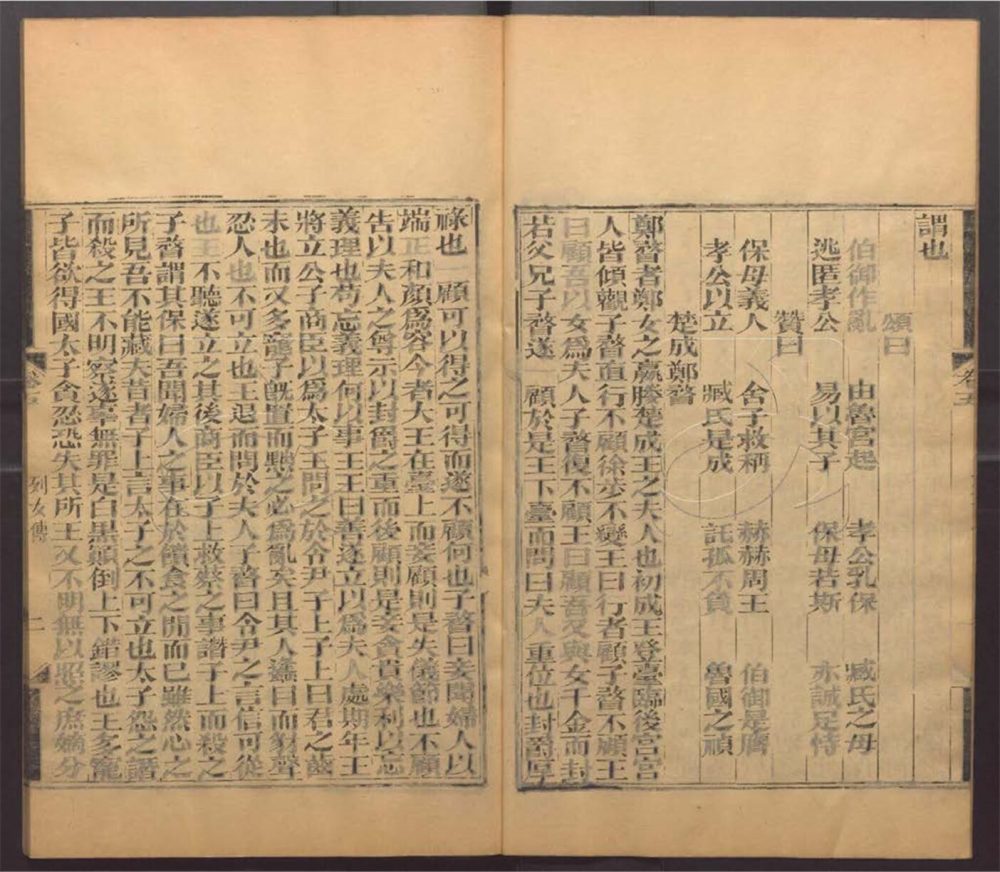 謂也
頌曰
伯御作亂　由魯宮起　孝公乳保　臧氏之母
逃匿孝公　易以其子　保母若斯　亦誠足恃
贊曰
保母義人　舍子救稱　赫赫周王　伯御是膺
孝公以立　臧氏是成　託孤不負　魯國之禎
楚成鄭瞀
鄭瞀者鄭女之嬴媵楚成王之夫人也初成王登臺臨後宮宮
人皆傾觀子瞀直行不顧徐步不變王曰行者顧子瞀不顧王
曰顧吾以女為夫人子瞀復不顧王曰顧吾又與女千金而封
若父兄子瞀遂一顧於是王下臺而問曰夫人重位也封爵厚
祿也一顧可以得之可得而遂不顧何也子瞀曰妾聞婦人以
端正和顏為容今者大王在臺上而妾顧則是失儀節也不顧
告以夫人之尊示以封爵之重而後顧則是妾貪貴樂利以忘
義理也苟忘義理何以事王王曰善遂立以為夫人處期年王
將立公子商臣以為太子王問之於令尹子上子上曰君之齒
未也而又多寵子旣置而黜之必為亂矣且其人蠭目而豺聲
忍人也不可立也王退而問於夫人子瞀曰令尹之言信可從
也王不聽遂立之其後商臣以子上救蔡之事譖子上而殺之
子瞀謂其保曰吾聞婦人之事在於饋食之間而已雖然心之
所見吾不能藏夫昔者子上言太子之不可立也太子怨之譖
而殺之王不明察遂辜無罪是白黑顛倒上下錯謬也王多寵
子皆欲得國太子貪忍恐失其所王又不明無以照之庶嫡分
卷五
列女傳
二